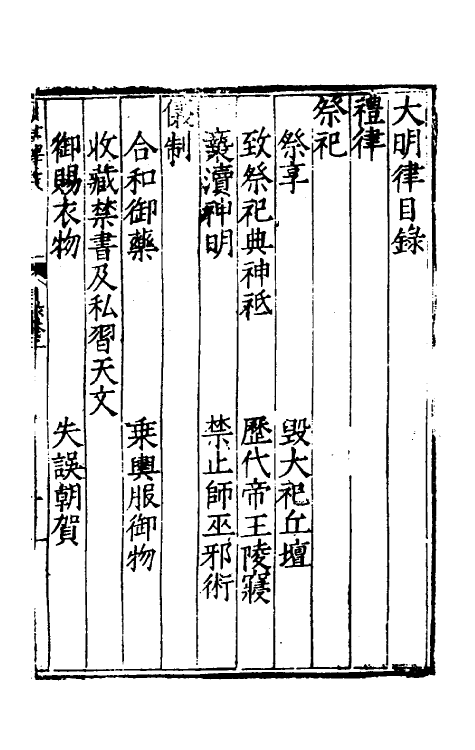 大明律目錄
禮律
祭祀
祭享 毀大祀丘壇
致祭祀典神祗 歷代帝王陵寢
䙝瀆神明 禁止師巫邪術
儀制
合和御藥 乘輿服御物
收藏禁書及私習天文
御賜衣物 失誤朝賀